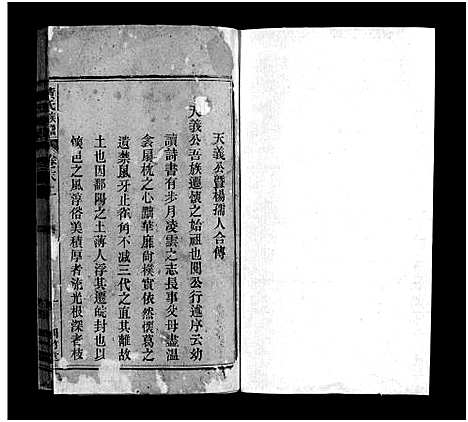 天義公曁楊孺人合傳
天義公吾族遷懷之始祖也閱公行述序云幼
讀詩書有步月凌雲之志長事父母盡溫
衾扇枕之心黜華靡尚樸實依然懷葛之
遺禁風牙止雀角不减三代之直其離故
土也因鄱陽之土薄人浮其遷皖封也以
懷邑之風淳俗美積厚者流光根深者枝
黃氏族譜